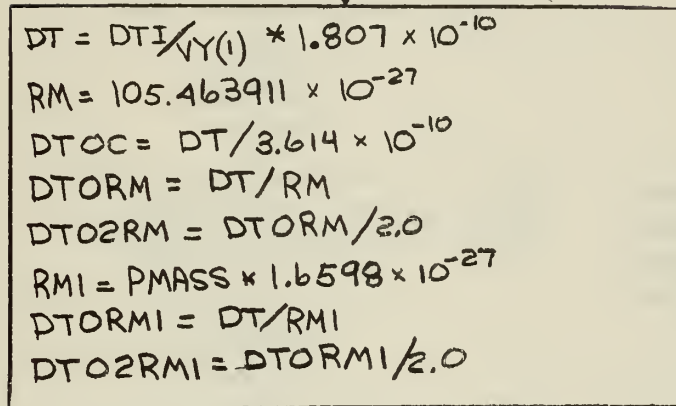 DT = DTI/VY(1) * 1.807 x 10^-10
RM = 105.463911 x 10^-27
DTOC = DT/3.614 x 10^-10
DTORM = DT/RM
DTO2RM = DTORM/2.0
RM1 = PMASS * 1.6598 x 10^-27
DTORM1 = DT/RM1
DTO2RM1 = DTORM1/2.0